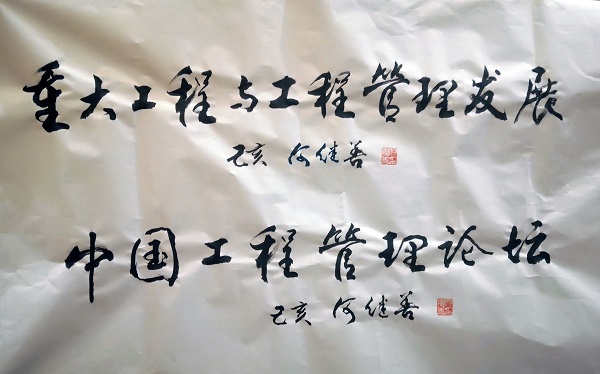 重大工程与工程管理发展
己亥 何继善
中国工程管理论坛
己亥 何继善